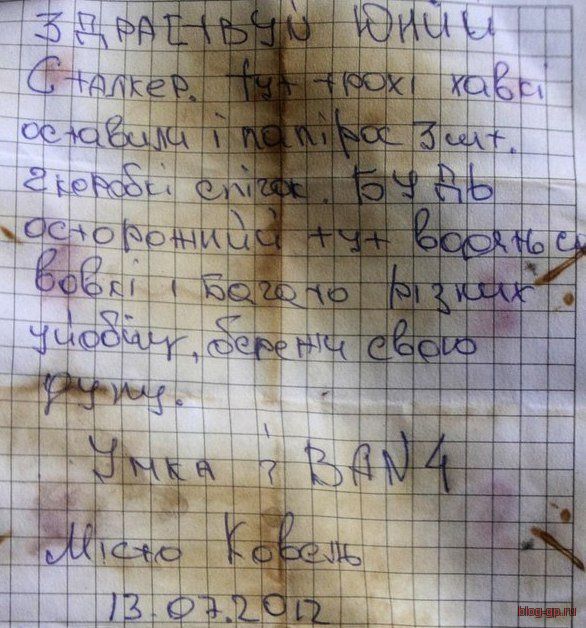 ЗДРАСТВУЙ ЮНИЙ
Сталкер. тут трохі хавкі
оставили і папірос 3 шт.
2 коробкі спічок. БУДЬ
осторожний тут водяться
вовкі і багато різних
уйобіщ, бережи свою
дупу.
Умка і BAN4
Місто Ковель
13.07.2012
blog-gp.ru